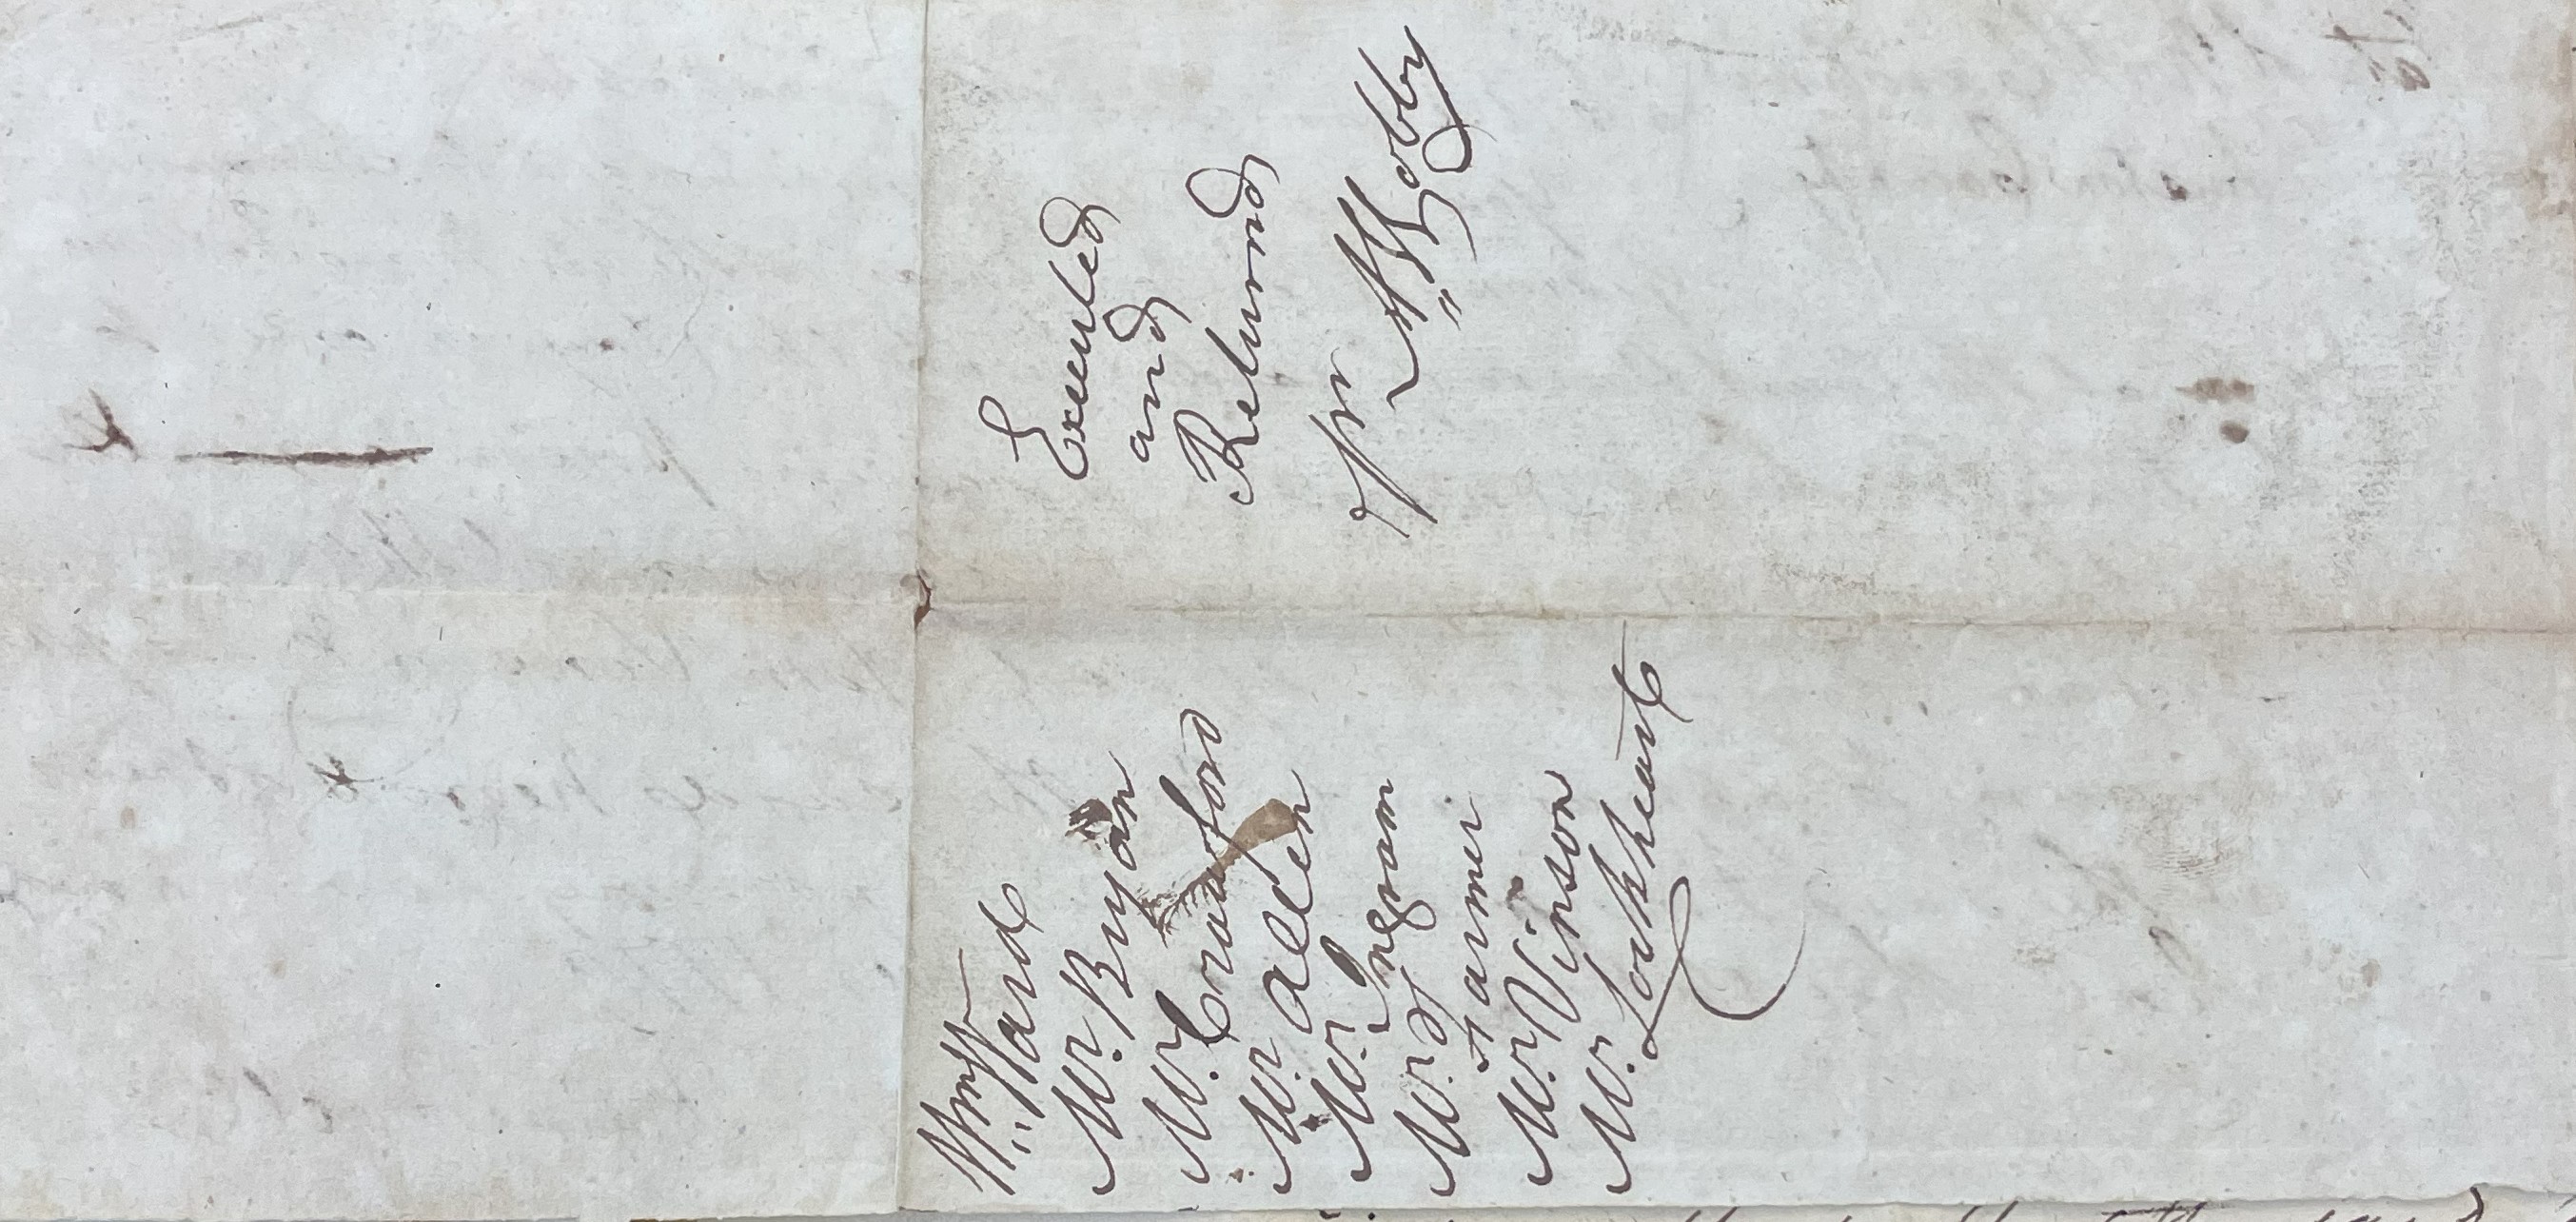 Wm Hart
Mr. Bryan
Mr. Crawford
Mr. Allen
Mr. Ingram
Mr. Farmer
Mr. Vinson
Mr. Lockheart
Executed
and
Returned
pr